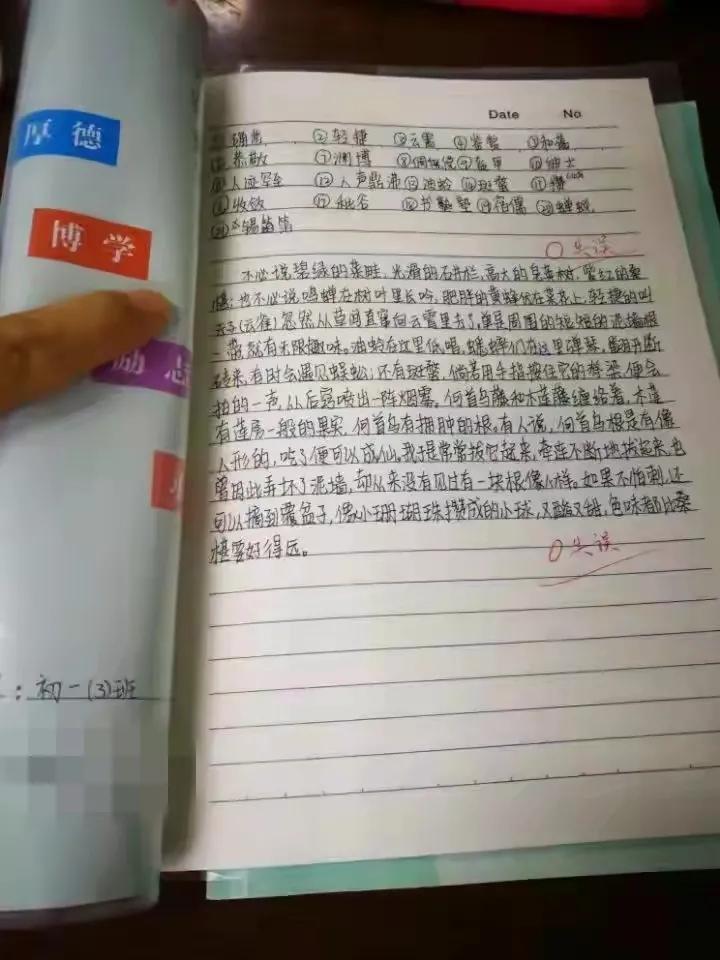 厚 德
博 学
励 志
：初一(3)班
Date No
①确凿 ②轻捷 ③云霄 ④鉴赏 ⑤和蔼
⑥恭敬 ⑦渊博 ⑧倜傥 ⑨盔甲 ⑩绅士
⑪人迹罕至 ⑫人声鼎沸 ⑬油蛉 ⑭斑蝥 ⑮攒
⑯收敛 ⑰秕谷 ⑱书塾 ⑲宿儒 ⑳蝉蜕
㉑锡箔
0失误
不必说碧绿的菜畦，光滑的石井栏，高大的皂荚树，紫红的桑
椹；也不必说鸣蝉在树叶里长吟，肥胖的黄蜂伏在菜花上，轻捷的叫
天子(云雀)忽然从草间直窜向云霄里去了，单是周围的短短的泥墙根
一带，就有无限趣味。油蛉在这里低唱，蟋蟀们在这里弹琴。翻开断
砖来，有时会遇见蜈蚣；还有斑蝥，倘若用手指按住它的脊梁，便会
拍的一声，从后窍喷出一阵烟雾。何首乌藤和木莲藤缠络着，木莲
有莲房一般的果实，何首乌有拥肿的根。有人说，何首乌根是有像
人形的，吃了便可以成仙，我于是常常拔它起来，牵连不断地拔起来，也
曾因此弄坏了泥墙，却从来没有见过有一块根像人样。如果不怕刺，还
可以摘到覆盆子，像小珊瑚珠攒成的小球，又酸又甜，色味都比桑
椹要好得远。
0失误